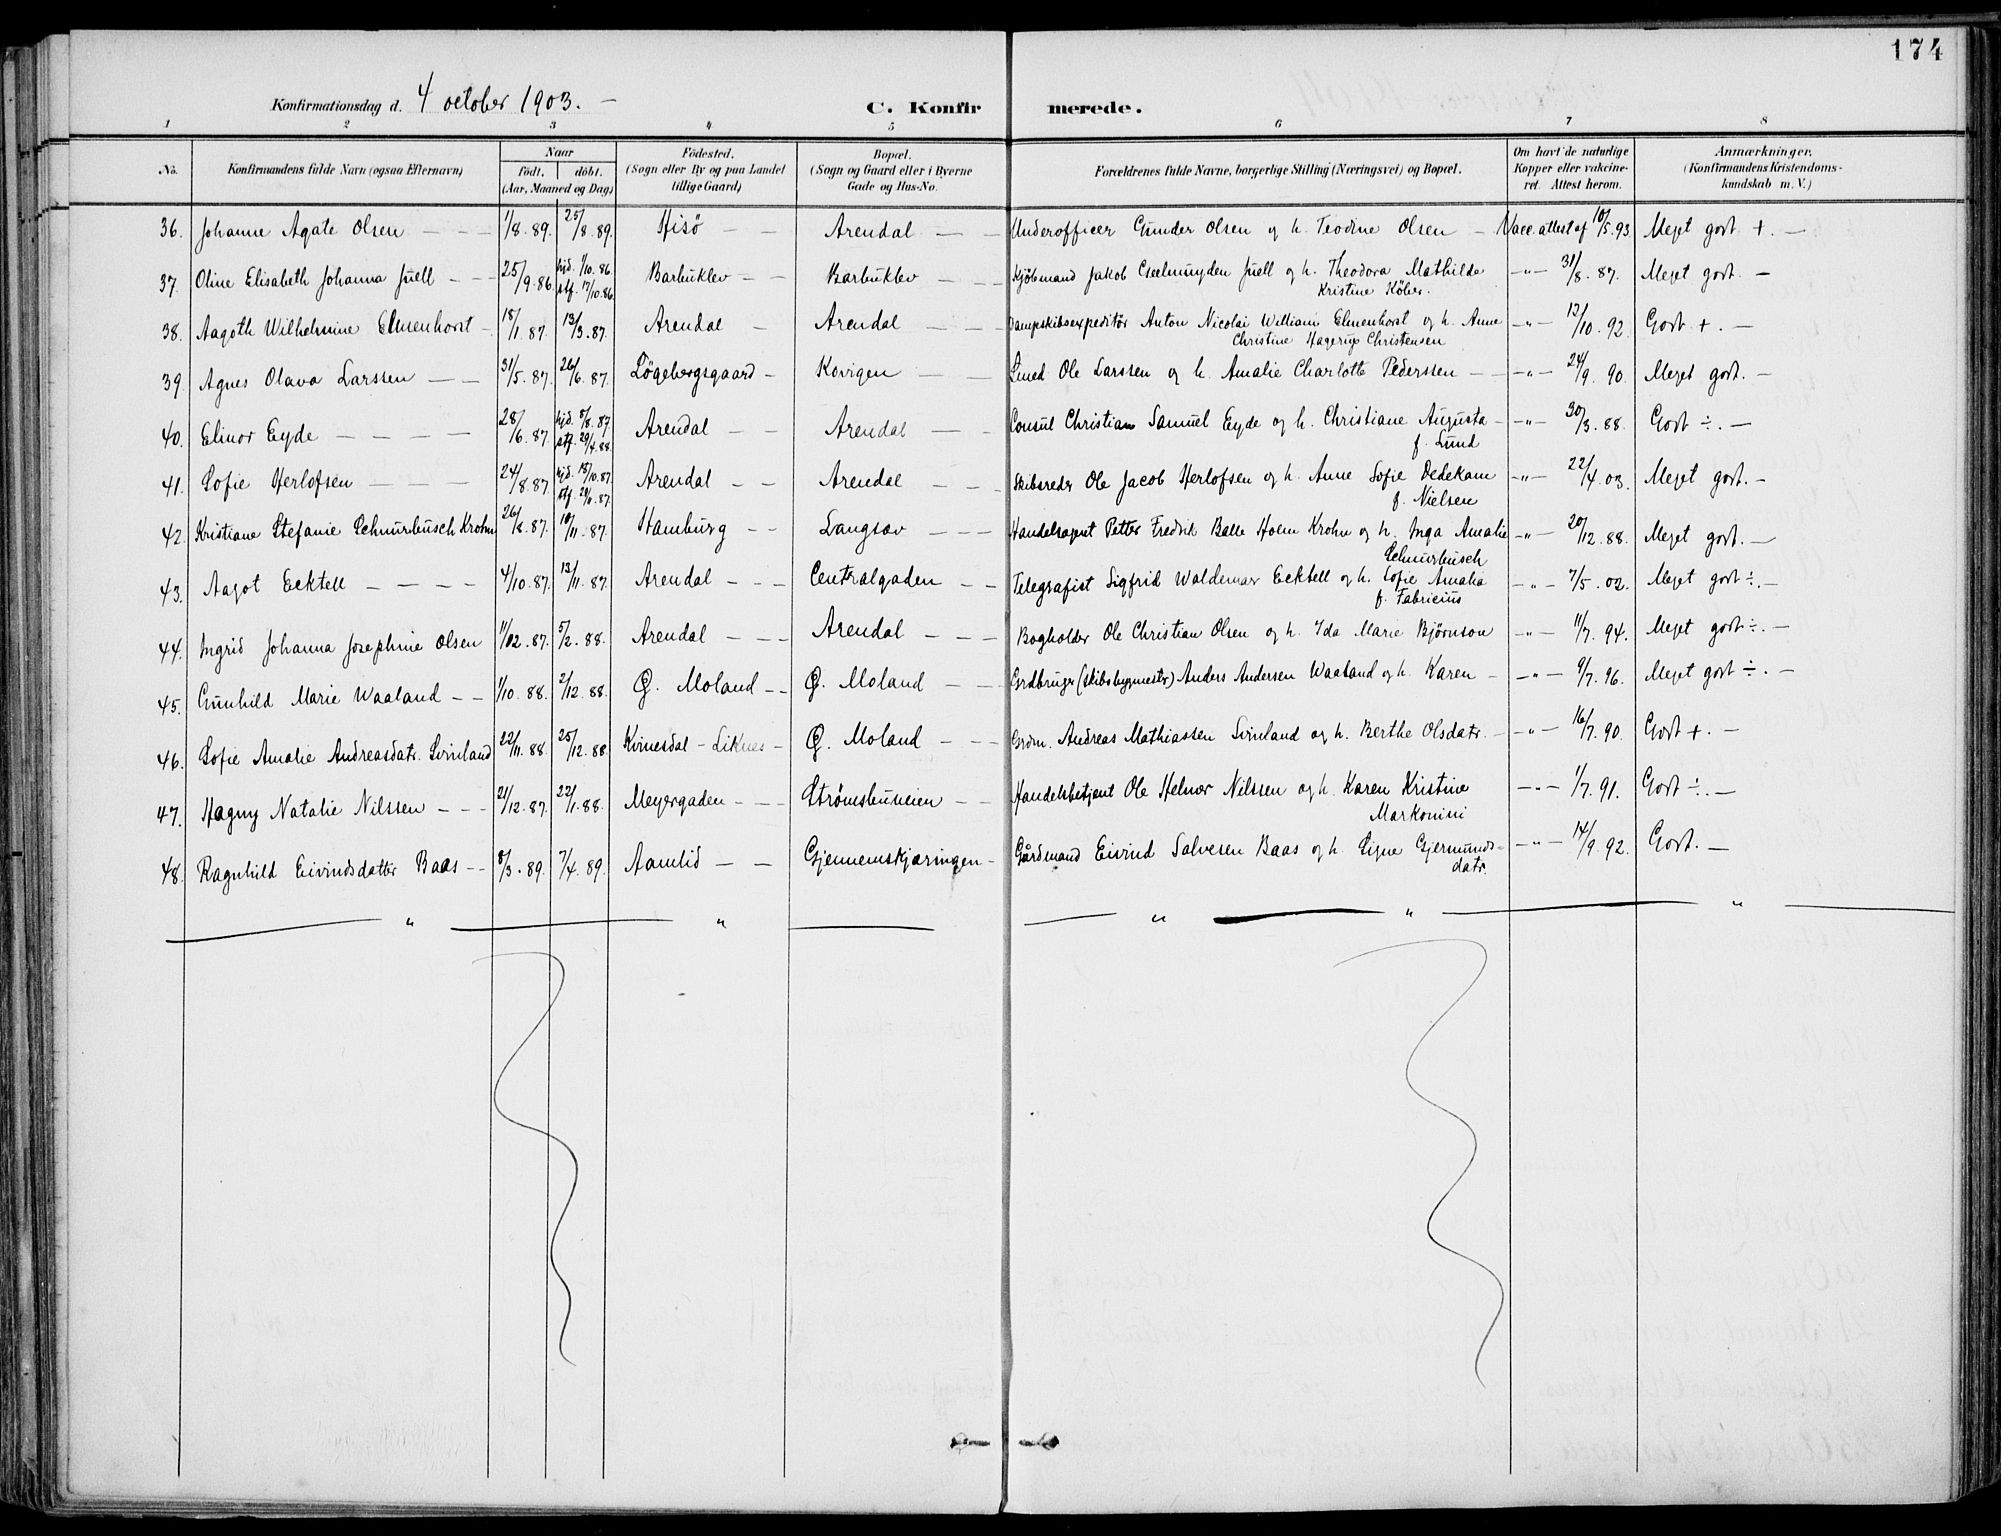 174
Konfirmationsdag d. 4 october 1903. —
C. Konfirmerede.
1 2 3 4 5 6 7 8
No. Konfirmandens fulde Navn (ogsaa Efternavn) Naar födt. döbt. (Aar, Maaned og Dag) Födested. (Sogn eller By og paa Landet tillige Gaard) Bopæl. (Sogn og Gaard eller i Byerne Gade og Hus-No. Forældrenes fulde Navne, borgerlige Stilling (Næringsvei) og Bopæl. Om havt de naturlige Kopper eller vakcineret. Attest herom. Anmærkninger. (Konfirmandens Kristendomskundskab m. V.)
36. Johanne Agate Olsen — — 1/8.89. 25/8.89. Hisö — — Arendal — — Underofficer Gunder Olsen og h. Teodine Olsen — Vacc.attest af 10/5.93. Meget godt +. —
37. Oline Elisabeth Johanna Juell — — 25/9.86. hjd. 1/10.86. stf. 17/10.86. Barbuklev — — Barbuklev — — Kjöbmand Jakob Juell og h. Theodora Mathilde Kristine Köber. —"— 31/8.87. Meget godt. —
38. Aagoth Wilhelmine Elmenhorst — 18/1.87. 13/3.87. Arendal — Arendal — — Dampskibsexpeditör Anton Nicolai William Elmenhorst og h. Anne Christine Hagerup Christensen —"— 13/10.92. Godt +. —
39. Agnes Olava Larssen — — 31/5.87. 26/6.87. Lögebergsgaard — Kovigen — — Smed Ole Larssen og h. Amalie Charlotte Pederssen — — —"— 24/9.90. Meget godt. —
40. Elinor Eyde — — — — 28/6.87. hjd. 5/8.87. stf. 29/4.88. Arendal — — Arendal — — Consul Christian Samuel Eyde og h. Christiane Augusta f. Lund —"— 30/3.88. Godt ÷. —
41. Sofie Herlofsen — — — 24/8.87. hjd. 18/10.87. stf. Arendal — — Arendal — — Skibsreder Ole Jacob Herlofsen og h. Anne Sofie Dedekam f. Nielsen —"— 22/4.03. Meget godt. —
42. Kristiane Stefanie Schnurbusch Krohn 26/8.87. 10/11.87. Hamburg — — Langsæv — — — Handelsagent Petter Fredrik Balle Holm Krohn og h. Inga Amalie Schnurbusch —"— 20/12.88. Meget godt. —
43. Aagot Ecktell — — — — 4/10.87. 13/11.87. Arendal — — — Centralgaden — — Telegrafist Sigfrid Waldemar Ecktell og h. Sofie Amalia f. Fabricius —"— 7/5.02. Meget godt ÷. —
44. Ingrid Johanna Josephine Olsen 11/02.87. 5/2.88. Arendal — — — Arendal — — — Bogholder Ole Christian Olsen og h. Ida Marie Björnson —"— 11/7.94. Meget godt ÷. —
45. Gunhild Marie Waaland — — 1/10.88. 2/12.88. Ø. Moland — — Ø. Moland — — — Grdbruger (Skibsbygmester) Anders Andersen Waaland og h. Karen — —"— 9/7.96. Meget godt ÷. —
46. Sofie Amalie Andreasdatr. Svinland 22/11.88. 25/12.88. Kvinesdal — Liknes — Ø. Moland — — — Grdm. Andreas Mathiassen Svinland og h. Berthe Olsdatr. — —"— 16/7.90. Godt +. —
47. Hagny Natalie Nilssen — — — 21/12.87. 22/1.88. Meyergaden — — — Strömsbuneien — — Handelsbetjent Ole Helmer Nilssen og h. Karen Kristine Markonini —"— 1/7.91. Godt ÷. —
48. Ragnhild Eivindsdatter Baas — — 8/3.89. 7/4.89. Aamlid — — Gjennemskjæringen — Gårdmand Eivind Salvesen Baas og h. Signe Gjermundsdatr. —"— 14/9.92. Godt. —
— " — " — — " — " — " —